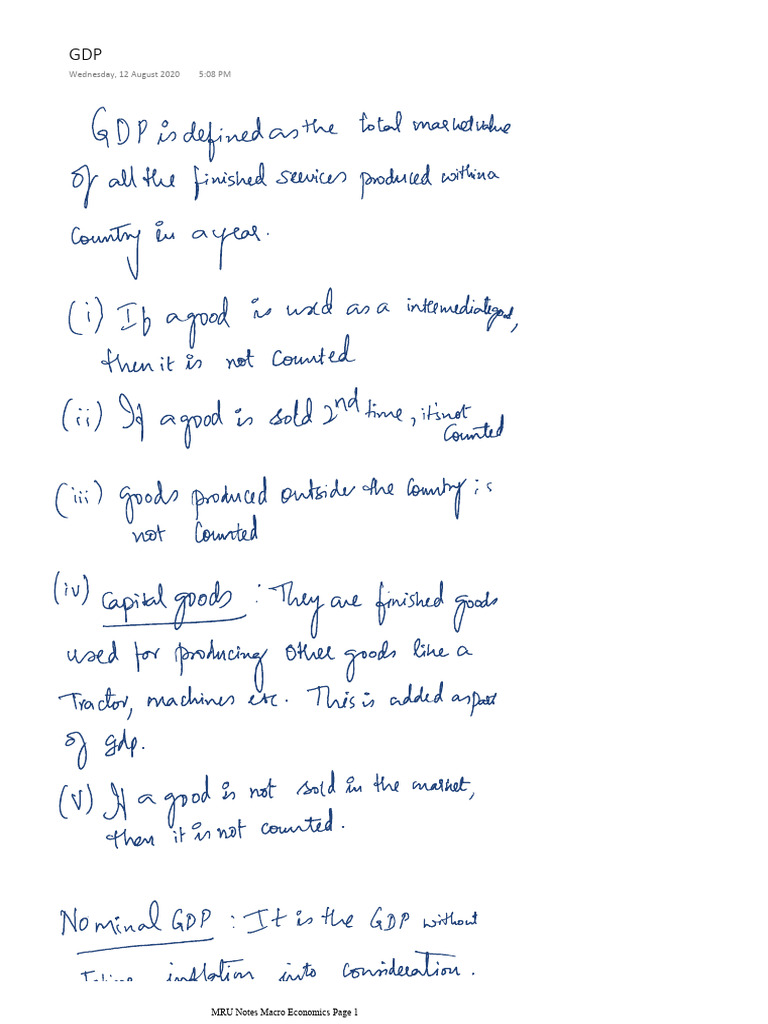 GDP
Wednesday, 12 August 2020 5:08 PM
GDP is defined as the total market value
of all the finished services produced within a
Country in a year.
(i) If a good is used as a intermediate good,
then it is not counted
(ii) If a good is sold 2nd time, it's not
Counted
(iii) goods produced outside the Country is
not Counted
(iv) Capital goods : They are finished goods
used for producing other goods like a
Tractor, machines etc. This is added as part
of gdp.
(V) If a good is not sold in the market,
then it is not counted.
Nominal GDP : It is the GDP without
Taking inflation into consideration.
MRU Notes Macro Economics Page 1